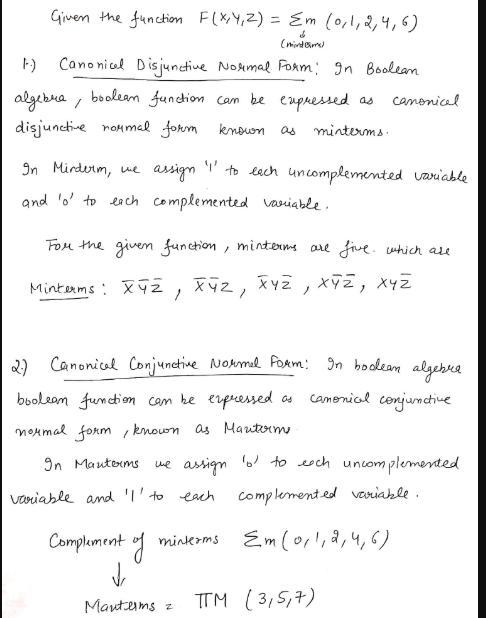 Given the function F(X,Y,Z) = Σm (0,1,2,4,6)
↓
(minterms)
1.) Canonical Disjunctive Normal Form: In Boolean
algebra, boolean function can be expressed as canonical
disjunctive normal form known as minterms.
In Minterm, we assign '1' to each uncomplemented variable
and '0' to each complemented variable.
For the given function, minterms are five. which are
Minterms: X̅Y̅Z̅, X̅Y̅Z, X̅YZ̅, XY̅Z̅, XYZ̅
2.) Canonical Conjunctive Normal Form: In boolean algebra
boolean function can be expressed as canonical conjunctive
normal form, known as Maxterms
In Maxterms we assign '0' to each uncomplemented
variable and '1' to each complemented variable.
Complement of minterms Σm (0,1,2,4,6)
↓
Maxterms = ΠM (3,5,7)